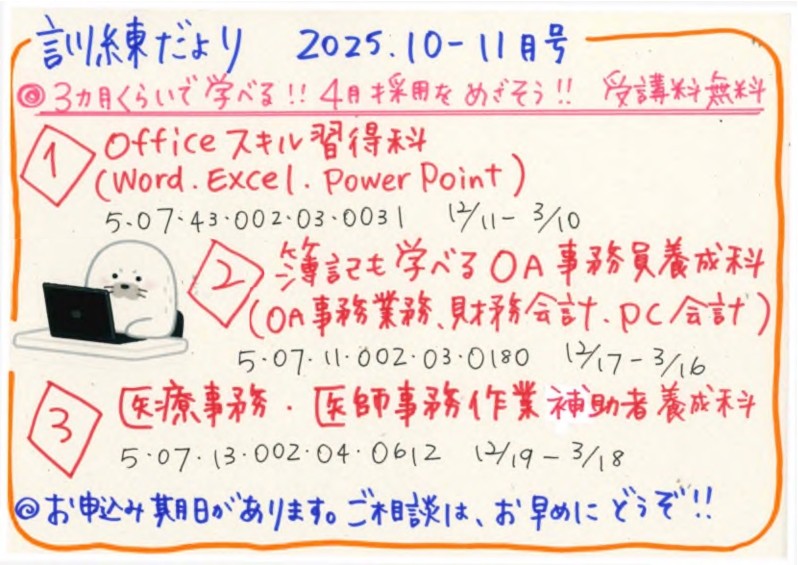 訓練だより 2025.10-11月号
◎3カ月くらいで学べる!! 4月採用をめざそう!! 受講料無料
1 Officeスキル習得科
(Word.Excel.PowerPoint)
5-07-43-002-03-0031 12/11- 3/10
2 簿記も学べるOA事務員養成科
(OA事務業務、財務会計、PC会計)
5-07-11-002-03-0180 12/17-3/16
3 医療事務・医師事務作業補助者養成科
5-07-13-002-04-0612 12/19-3/18
◎お申込み期日があります。ご相談は、お早めにどうぞ!!